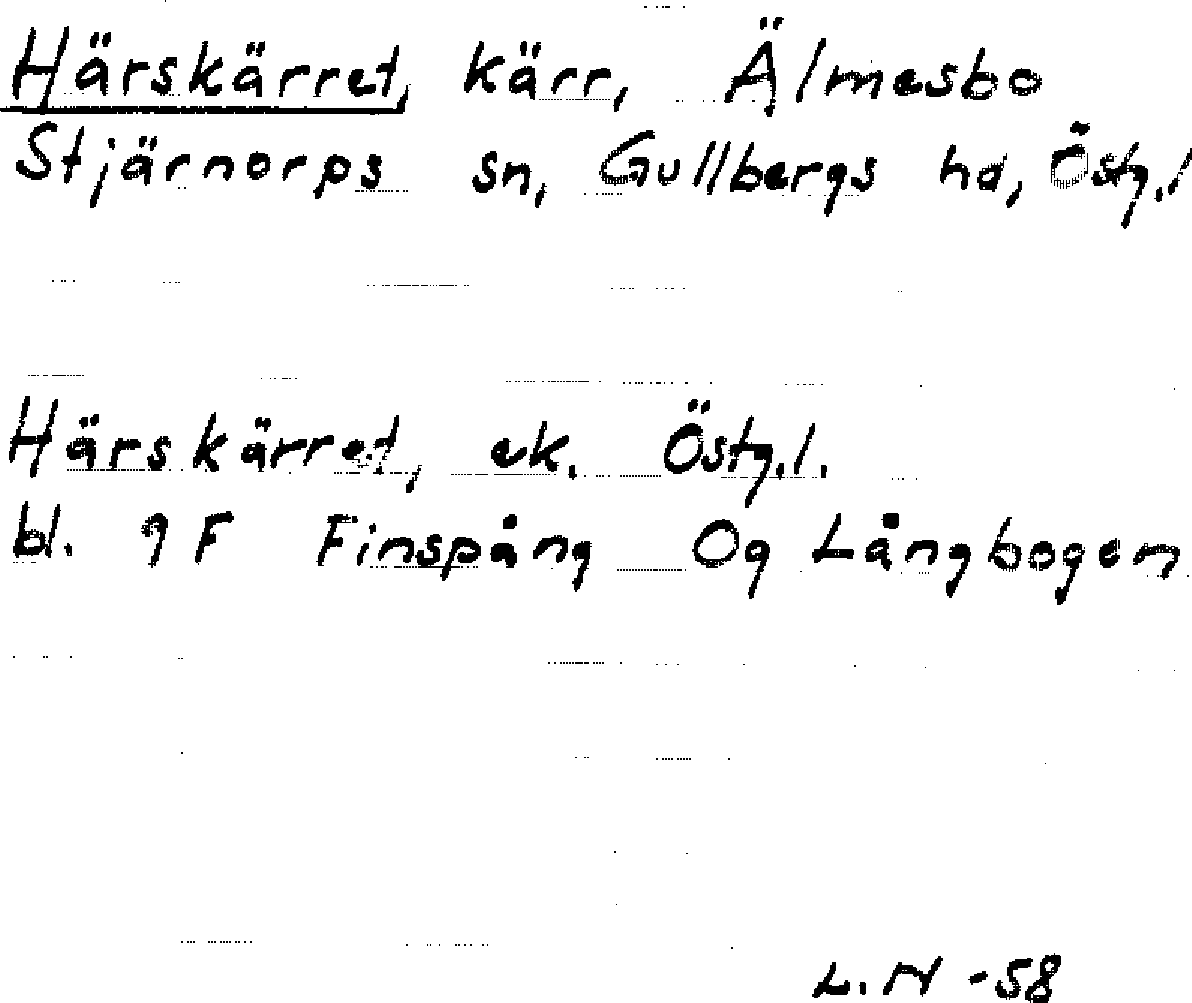 Härskärret, kärr, Älmesbo
Stjärnorps sn, Gullbergs hd, Östg.l
Härskärret, ek. Östg.l.
bl. 9F Finspång Og Långbogen
L. N -58